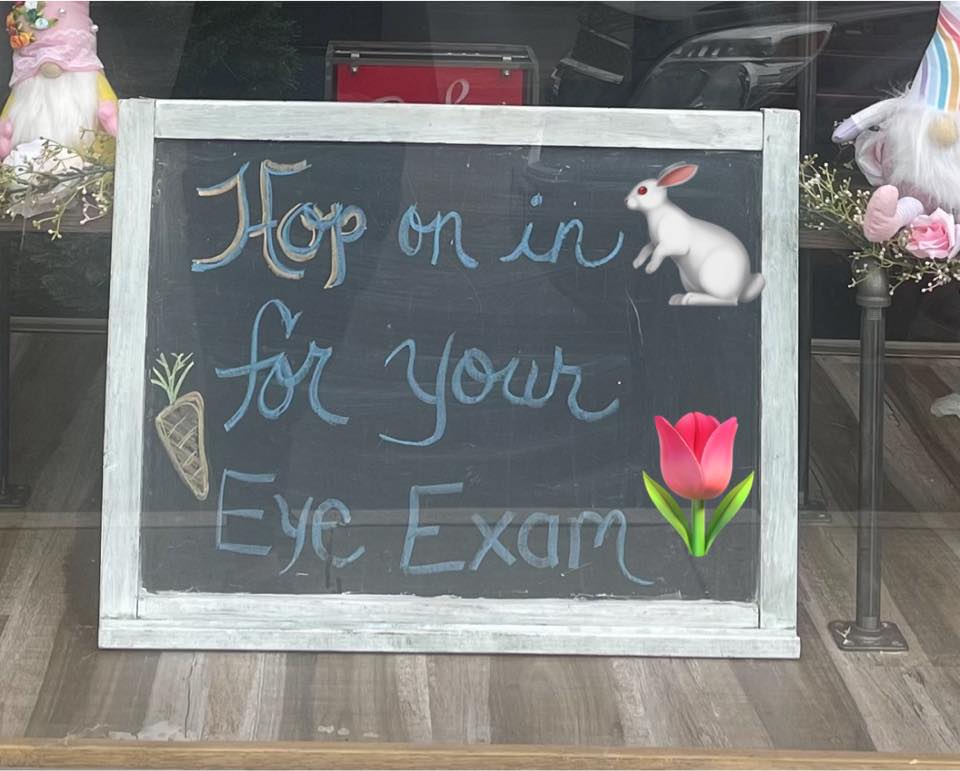 Hop on in
for your
Eye Exam